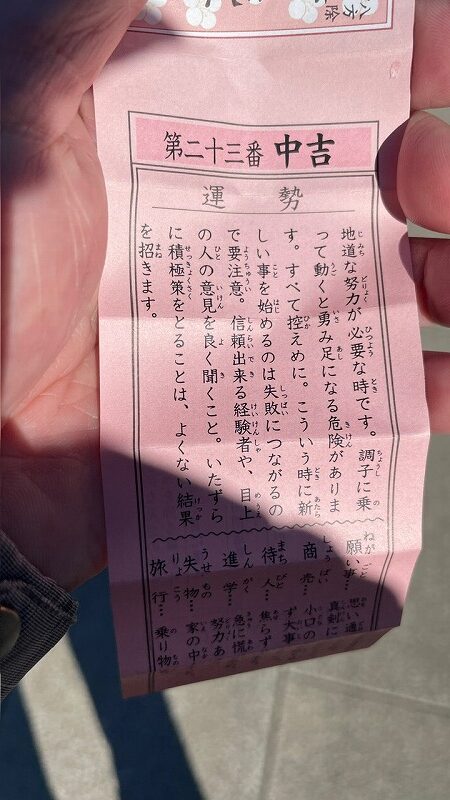 八方除
第二十三番 中吉
運勢
地道な努力が必要な時です。調子に乗
って動くと勇み足になる危険がありま
す。すべて控えめに。こういう時に新
しい事を始めるのは失敗につながるの
で要注意。信頼出来る経験者や、目上
の人の意見を良く聞くこと。いたずら
に積極策をとることは、よくない結果
を招きます。
願い事…思い通
真剣に
商売…小口の
ず大事
待人…焦らず
進学…急に慌
努力あ
失物…家の中
旅行…乗り物